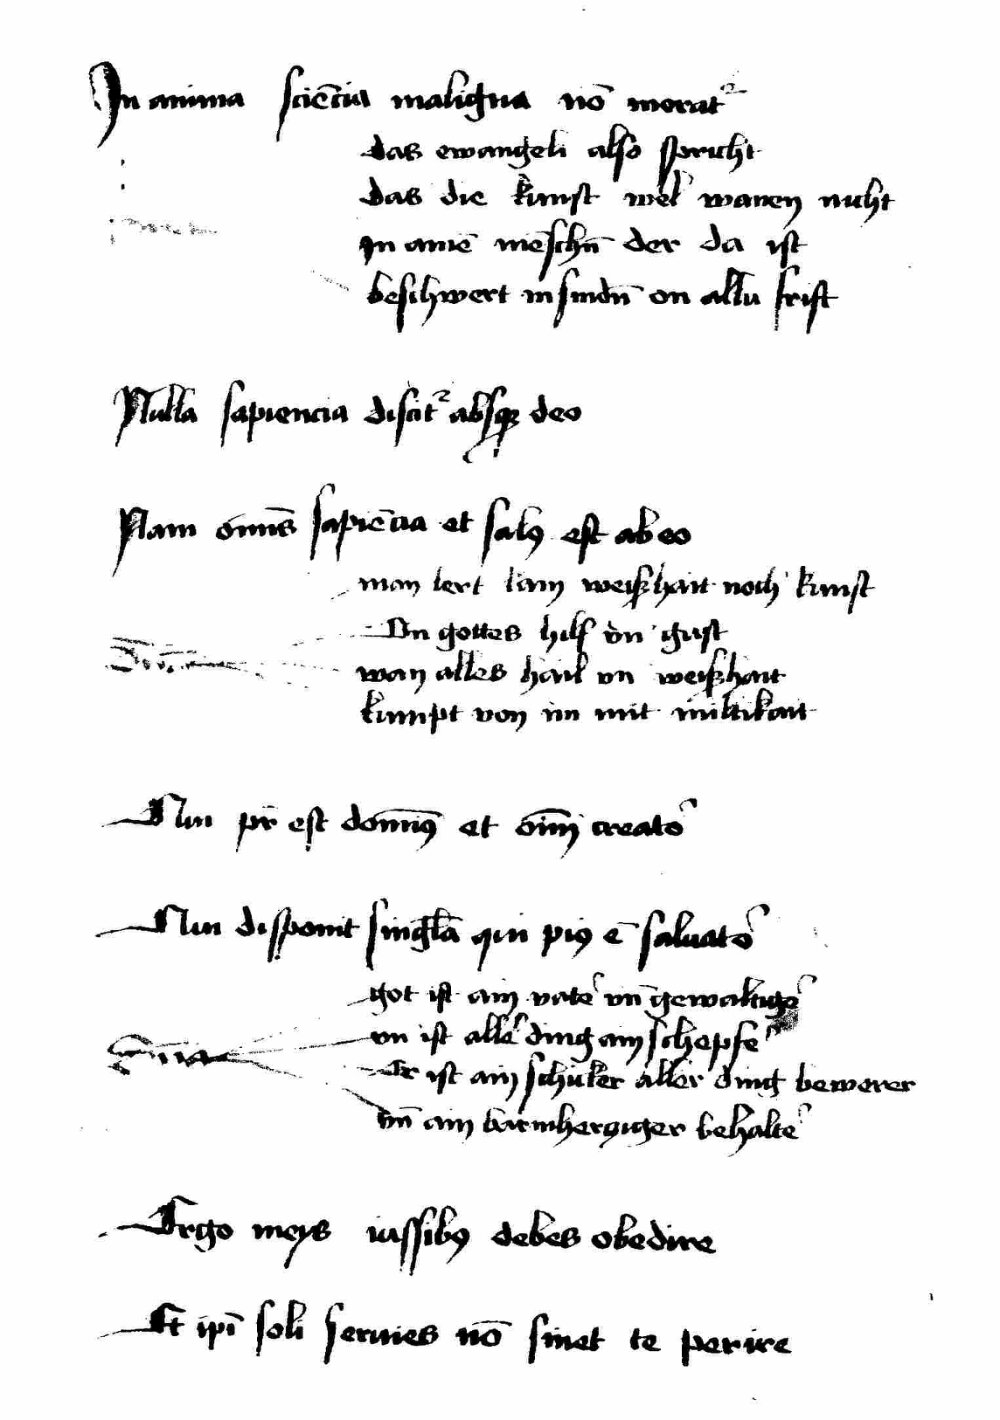 In anima sciēcia maligna nō morat᷑
das ewangeli also spricht
das die kunst wel wanen nicht
In ainē mēschn̄ der da ist
beschwert in sindn̄ on alln frist
Nulla sapiencia discit᷑ absqꝫ deo
Nam om̄is sapiēcia et salꝰ est ab eo
man lert kain weißhait noch kunst
On gottes hilf vn̄ gust
wan alles hail vn weißhait
kumpt von im mit miltikait
Qui pr̄ est dominꝰ et om̄i creatoʳ
Qui disponit singl̄a qui piꝰ ē saluatoʳ
got ist ain vateʳ vn̄ gewaltigeʳ
vn ist alleʳ ding ain schepfeʳ
Er ist ain schicker aller ding bewerer
vn̄ ain barmhercziger behalteʳ
Ergo meys iussibꝰ debes obedire
Et ip̄i soli seruies nō sinet te perire